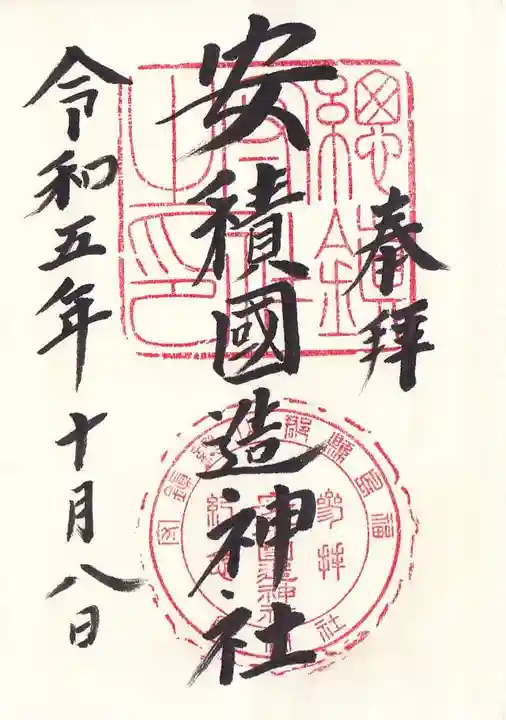 奉拜
安積國造神社
令和五年十月八日